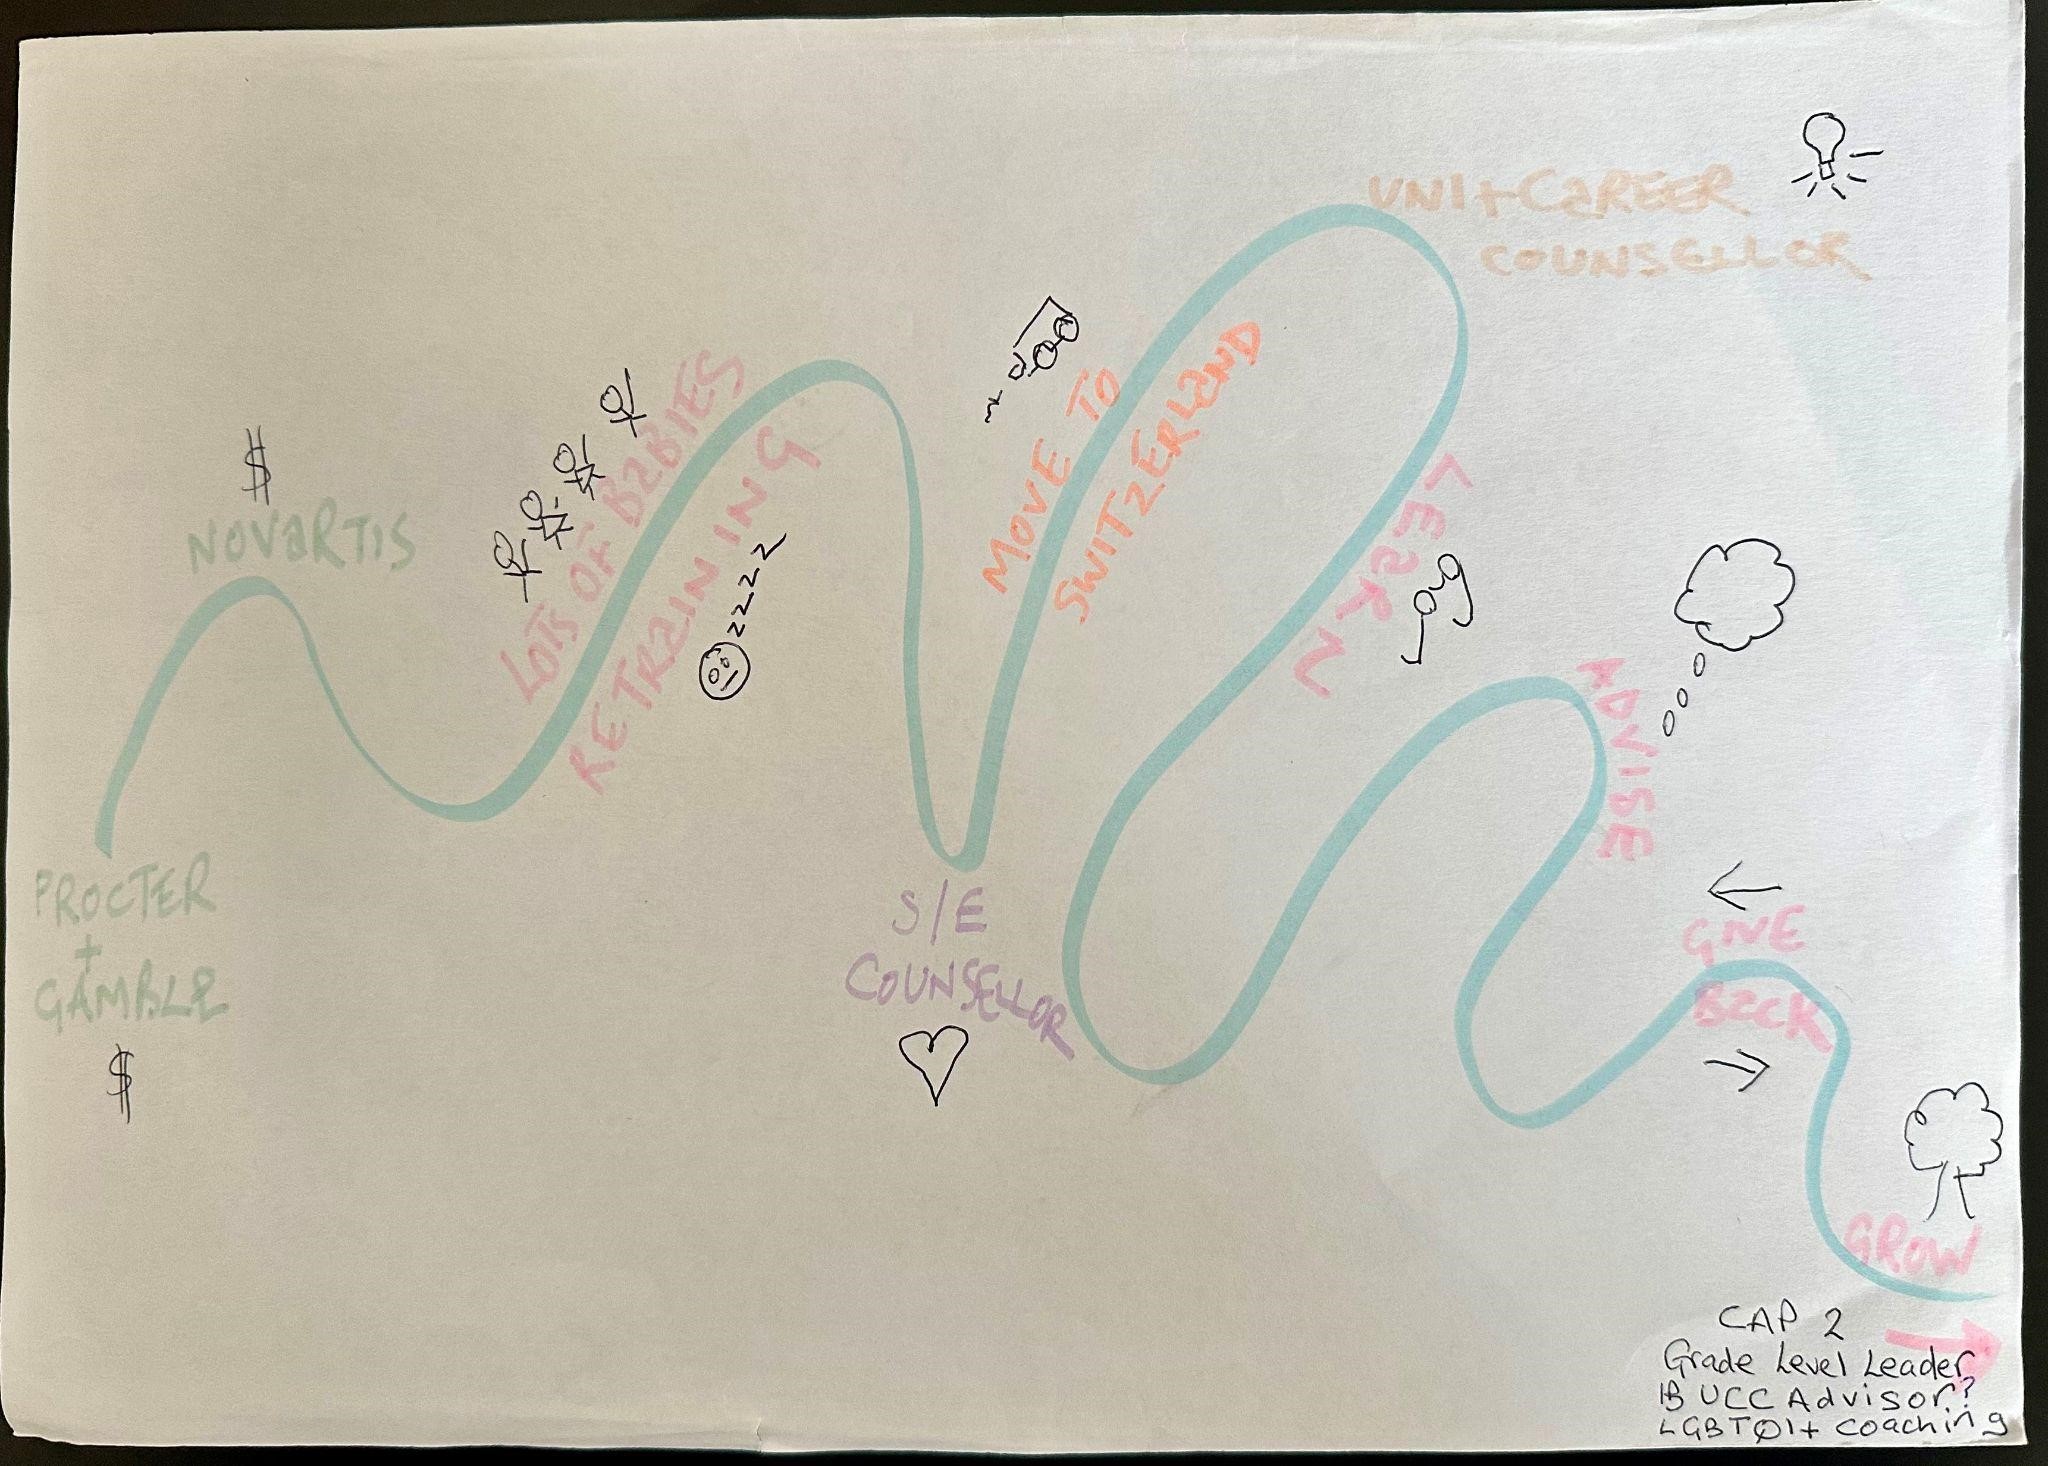 PROCTER
+
GAMBLE
$
$
NOVARTIS
LOTS OF BABIES
RETRAINING
zzzz
S/E
COUNSELLOR
MOVE TO
SWITZERLAND
UNI+CAREER
COUNSELLOR
LEARN
ADVISE
GIVE
BACK
GROW
CAP 2
Grade Level Leader
IB UCC Advisor?
LGBTQI+ coaching